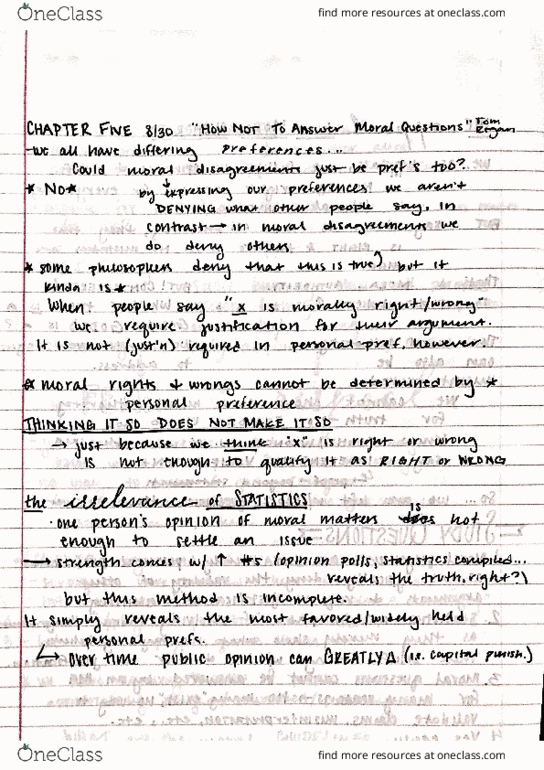 OneClass
find more resources at oneclass.com
CHAPTER FIVE 8/30 "How NOT To Answer Moral Questions" Tom Regan
-we all have differing preferences...
Could moral disagreements just be pref's too?
* No* by expressing our preferences we aren't
DENYING what other people say, in
contrast → in moral disagreements we
do deny others
* some philosophers deny that this is true) but it
kinda is *
When people say "x is morally right/wrong"
we require justification for their argument.
It is not (just'n) required in personal pref, however.
* moral rights & wrongs cannot be determined by *
personal preference
THINKING IT SO DOES NOT MAKE IT SO
→ just because we think "x" is right or wrong
is not enough to qualify it as RIGHT or WRONG
the irrelevance of STATISTICS
· one person's opinion of moral matters is not
enough to settle an issue
→ strength comes w/ ↑ #s (opinion polls, statistics compiled...
reveals the truth, right?)
but this method is incomplete.
It simply reveals the most favored/widely held
personal prefs.
↳ over time public opinion can GREATLY Δ (i.e. capital punish.)
OneClass
find more resources at oneclass.com